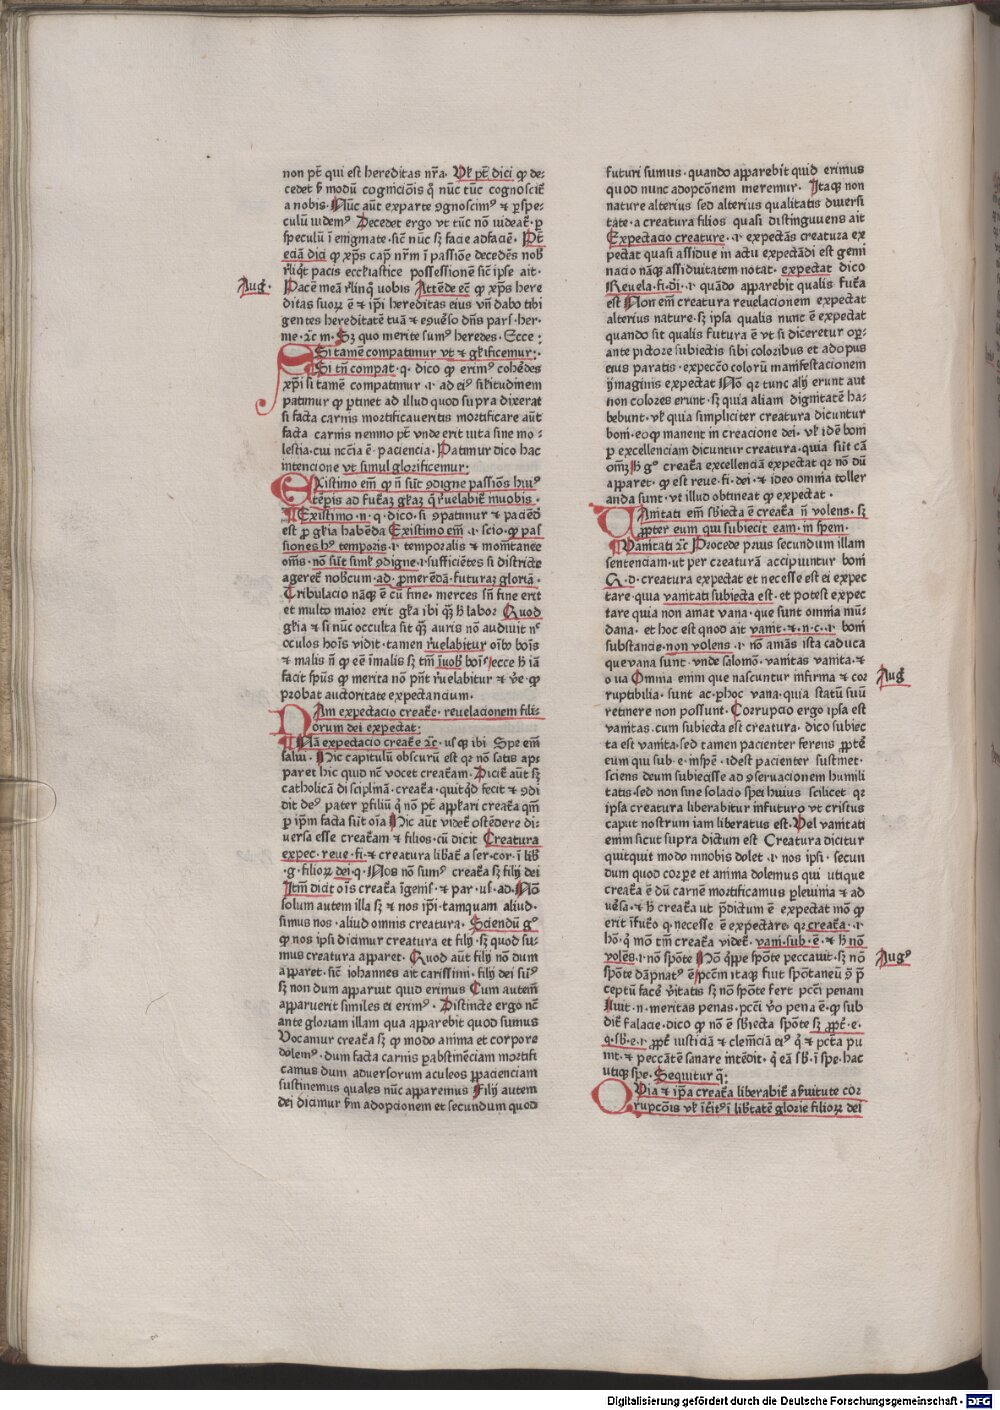 non pt̄ qui est hereditas nr̄a. Vl̓ pt̄ dici ꝙ de-
cedet ẜ modū cognicōis q̄ nūc tūc cognoscit᷑
a nobis. Nūc aūt ex parte ꝯgnoscimꝰ ⁊ ꝑ spe-
culū videmꝰ Decedet ergo vt tūc nō videat᷑ ꝑ
speculū ī enigmate. sic̄ nūc sꝫ facie ad faciē. Pt̄
eciā dici ꝙ xp̄s cap̄ nr̄m ī passiōe decedēs nob̄
r̄liq̄t pacis eccl̓iastice possessionē sic̄ ipse ait.
Aug̓. Pacē meā r̄linq̄ vobis Attēde eē ꝙ xp̄s here
ditas suoꝝ ē ⁊ ip̄i hereditas eius vn̄ dabo tibi
gentes hereditatē tuā ⁊ ecōuerso dn̄s pars her.
me. ⁊c̄ m. Sꝫ quo merite sumꝰ heredes. Ecce:
Si tamē compatimur vt ⁊ gl̓ificemur:.
Si tn̄ compat. q. dico ꝙ erimꝰ coh̓edes
xp̄i si tamē compatimur .i. ad eiꝰ sil̓itudinem
patimur ꝙ ꝑtinet ad illud quod supra dixerat
si facta carnis mortificaueritis mortificare aūt
facta carnis nemo pt̄ vnde erit vita sine mo-
lestia. cui nc̄cia ē paciencia. Patimur dico hac
intencione vt simul glorificemur:
Existimo em̄ ꝙ n̄ sūt ꝯdigne passiōs huiꝰ
tēpis ad fut̓aꝫ gl̓iaꝫ q̄ r̄uelabit᷑ in uobis.
Existimo .n. q. dico. si ꝯpatimur ⁊ paciēdo
est ꝓ gl̓ia habēda Existimo em̄ .i. scio. ꝙ pas
siones hꝰ temporis .i. temporalis ⁊ momētanee
om̄s. nō sūt siml̓ ꝯdigne .i. sufficiētes si districte
ageret᷑ nobiscum. ad ꝓmerēdā. futuraꝫ gloriā.
Tribulacio nāqꝫ ē cū fine. merces sn̄ fine erit
et multo maior erit gl̓ia ibi q̄ꝫ h̄ labor Quod
gl̓ia ⁊ si nūc occulta sit q̄ꝫ auris nō audiuit nꝰ
oculos hoīs vidit. tamen r̄uelabitur oīb̄ boīs
⁊ malis n̄ ꝙ eē ī malis sꝫ tm̄ ī uob̄ boīꝰ ecce h̄ iā
facit spūs ꝙ merita nō pn̄t r̄uelabitur ⁊ v̄e ꝙ
probat auctoritate expectancium.
Nam expectacio creat̓e. reuelacionem fili-
orum dei expectat:
Nā expectacio creat̓e ⁊c̄. usqꝫ ibi Spe em̄
salui. Hic capitulū obscurū est qꝛ nō satis ap-
paret hic quid nc̄ vocet creat̓am. Dicit᷑ aūt sꝫ
catholicā disciplinā. creat̓a. quitq̓d fecit ⁊ ꝯdi
dit deꝰ pater ꝑ filiū q̓ nō pt̄ appl̓ari creat̓a qm̄
ꝑ ip̄m facta sūt oīa Hic aūt videt᷑ ostēdere di-
uersa esse creat̓am ⁊ filios. cū dicit Creatura
expec. reue. fi. ⁊ creatura lib̓at᷑ a ser. cor. ī lib̄
.g. filioꝝ dei .q. Nos nō sumꝰ creat̓a sꝫ filij dei
Itm̄ dicit oīs creat̓a īgemīs. ⁊ par. us. ad. Nō
solum autem illa sꝫ ⁊ nos ip̄i. tamquam aliud.
simus nos. aliud omnis creatura. Sciendū gꝰ
ꝙ nos ipsi dicimur creatura et filij. sꝫ quod su-
mus creatura apparet. Quod aūt filij nō dum
apparet. sic̄ iohannes ait carissimi. filij dei sūꝰ
sꝫ non dum apparuit quid erimus Cum autem̄
apparuerit similes ei erimꝰ. Distincte ergo nc̄
ante gloriam illam qua apparebit quod sumus
Vocamur creat̓a sꝫ ꝙ modo anima et corpore
dolemꝰ. dum facta carnis ꝑ abstinēciam mortifi
camus dum aduersorum aculeos ꝑ pacienciam
sustinemus quales nūc apparemus Filij autem
dei dicimur ẜm adopcionem et secundum quod
futuri sumus. quando apparebit quid erimus
quod nunc adopcōnem meremur. Itaqꝫ non
nature alterius sed alterius qualitatis diuersi
tate. a creatura filios quasi distinguuens ait
Expectacio creature. .i. expectās creatura ex
pectat quasi assidue in actu expectādi est gemi
nacio nāqꝫ assiduitatem notat. expectat dico
Reuela. fi. di. .i. quādo apparebit qualis fut̓a
est Non em̄ creatura reuelacionem expectat
alterius nature. sꝫ ipsa qualis nunc ē expectat
quando sit qualis futura ē vt si diceretur oꝑ-
ante pictore subiectis sibi coloribus et ad opus
eius paratis. expeccō colorū manifestacionem
ymaginis expectat Nō qꝛ tunc alij erunt aut
non colores erunt. sꝫ quia aliam dignitatē ha-
bebunt. vl̓ quia simpliciter creatura dicuntur
boni. eoꝙ manent in creacione dei. vl̓ idē boni
ꝑ excellenciam dicuntur creatura. quia sūt cā
om̄ꝫ H̄ gꝰ creat̓a excellenciā expectat qꝛ nō dū
apparet. ꝙ est reue. fi. dei. ⁊ ideo omnia toller
anda sunt. vt illud obtineat ꝙ expectat.
Vanitati em̄ sb̄iecta ē creat̓a n̄ volens. sꝫ
ꝓpter eum qui subiecit eam. in spem.
Vanitati ⁊c̄ Procede prius secundum illam
sentenciam. ut per creaturā accipiuntur boni
Q. d. creatura expectat et necesse est ei expec
tare. quia vanitati subiecta est. et potest expec
tare quia non amat vana. que sunt omnia mū-
dana. et hoc est qnod ait vanit. ⁊. n. c. .i. boni
substancie. non volens. .i. nō amās ista caduca
que vana sunt. vnde salomō. vanitas vanita. ⁊
o ua Omnia enim que nascuntur infirma ⁊ cor Aug̓
ruptibilia. sunt ac ꝑ hoc vana. quia statū suū
retinere non possunt. Corrupcio ergo ipsa est
vanitas. cum subiecta est creatura. dico subiec
ta est vanita. sed tamen pacienter ferens ꝓptē
eum qui sub. e. in spē. idest pacienter sustinet.
sciens deum subiecisse ad ꝯseruacionem humili
tatis. sed non sine solacio spei huius scilicet qꝛ
ipsa creatura liberabitur in futuro vt cristus
caput nostrum iam liberatus est. Vel vanitati
enim sicut supra dictum est Creatura dicitur
quitquit modo in nobis dolet .i. nos ipsi. secun
dum quod corꝑe et anima dolemus qui utique
creat̓a ē dū carnē mortificamus ꝑ leuima ⁊ ad
uẽsa. ⁊ h̄ creat̓a ut p̄dictum ē expectat mō ꝙ
erit ī fut̓o q. necesse ē expectare. qꝛ creat̓a. .i.
hō. q̓ mō tm̄ creat̓a videt᷑. vani. sub. ē. ⁊ h̄ nō
volēs. .i. nō spōte Nō q̄ppe spōte peccauit. sꝫ nō Augꝰ
spōte dāpnatꝰ ē pc̄cm̄ itaqꝫ fuit spōtaneū ꝯ p̄
ceptū facē v̓itatis sꝫ nō spōte fert pcc̄i penam
luit .n. meritas penas. pcc̄i v̓o pena ē. ꝙ sub
dit᷑ falacie. dico ꝙ nō ē sb̄iecta spōte sꝫ ꝓpt̓. e.
q. sb̄. e. .i. ꝓpt̓ iusticiā ⁊ clemēciā eiꝰ q̓ ⁊ pcc̄ta pu
nit. ⁊ peccātē sanare intēdit. q̓ eā sb̄. ī spe. hac
utiqꝫ spe. Sequitur q̄:
Quia ⁊ ip̄a creat̓a liberabit᷑ a ẜuitute cor
rupcōis vl̓ īt̓itꝰ ī lib̓tatē glorie filioꝝ dei
Digitalisierung gefördert durch die Deutsche Forschungsgemeinschaft - DFG